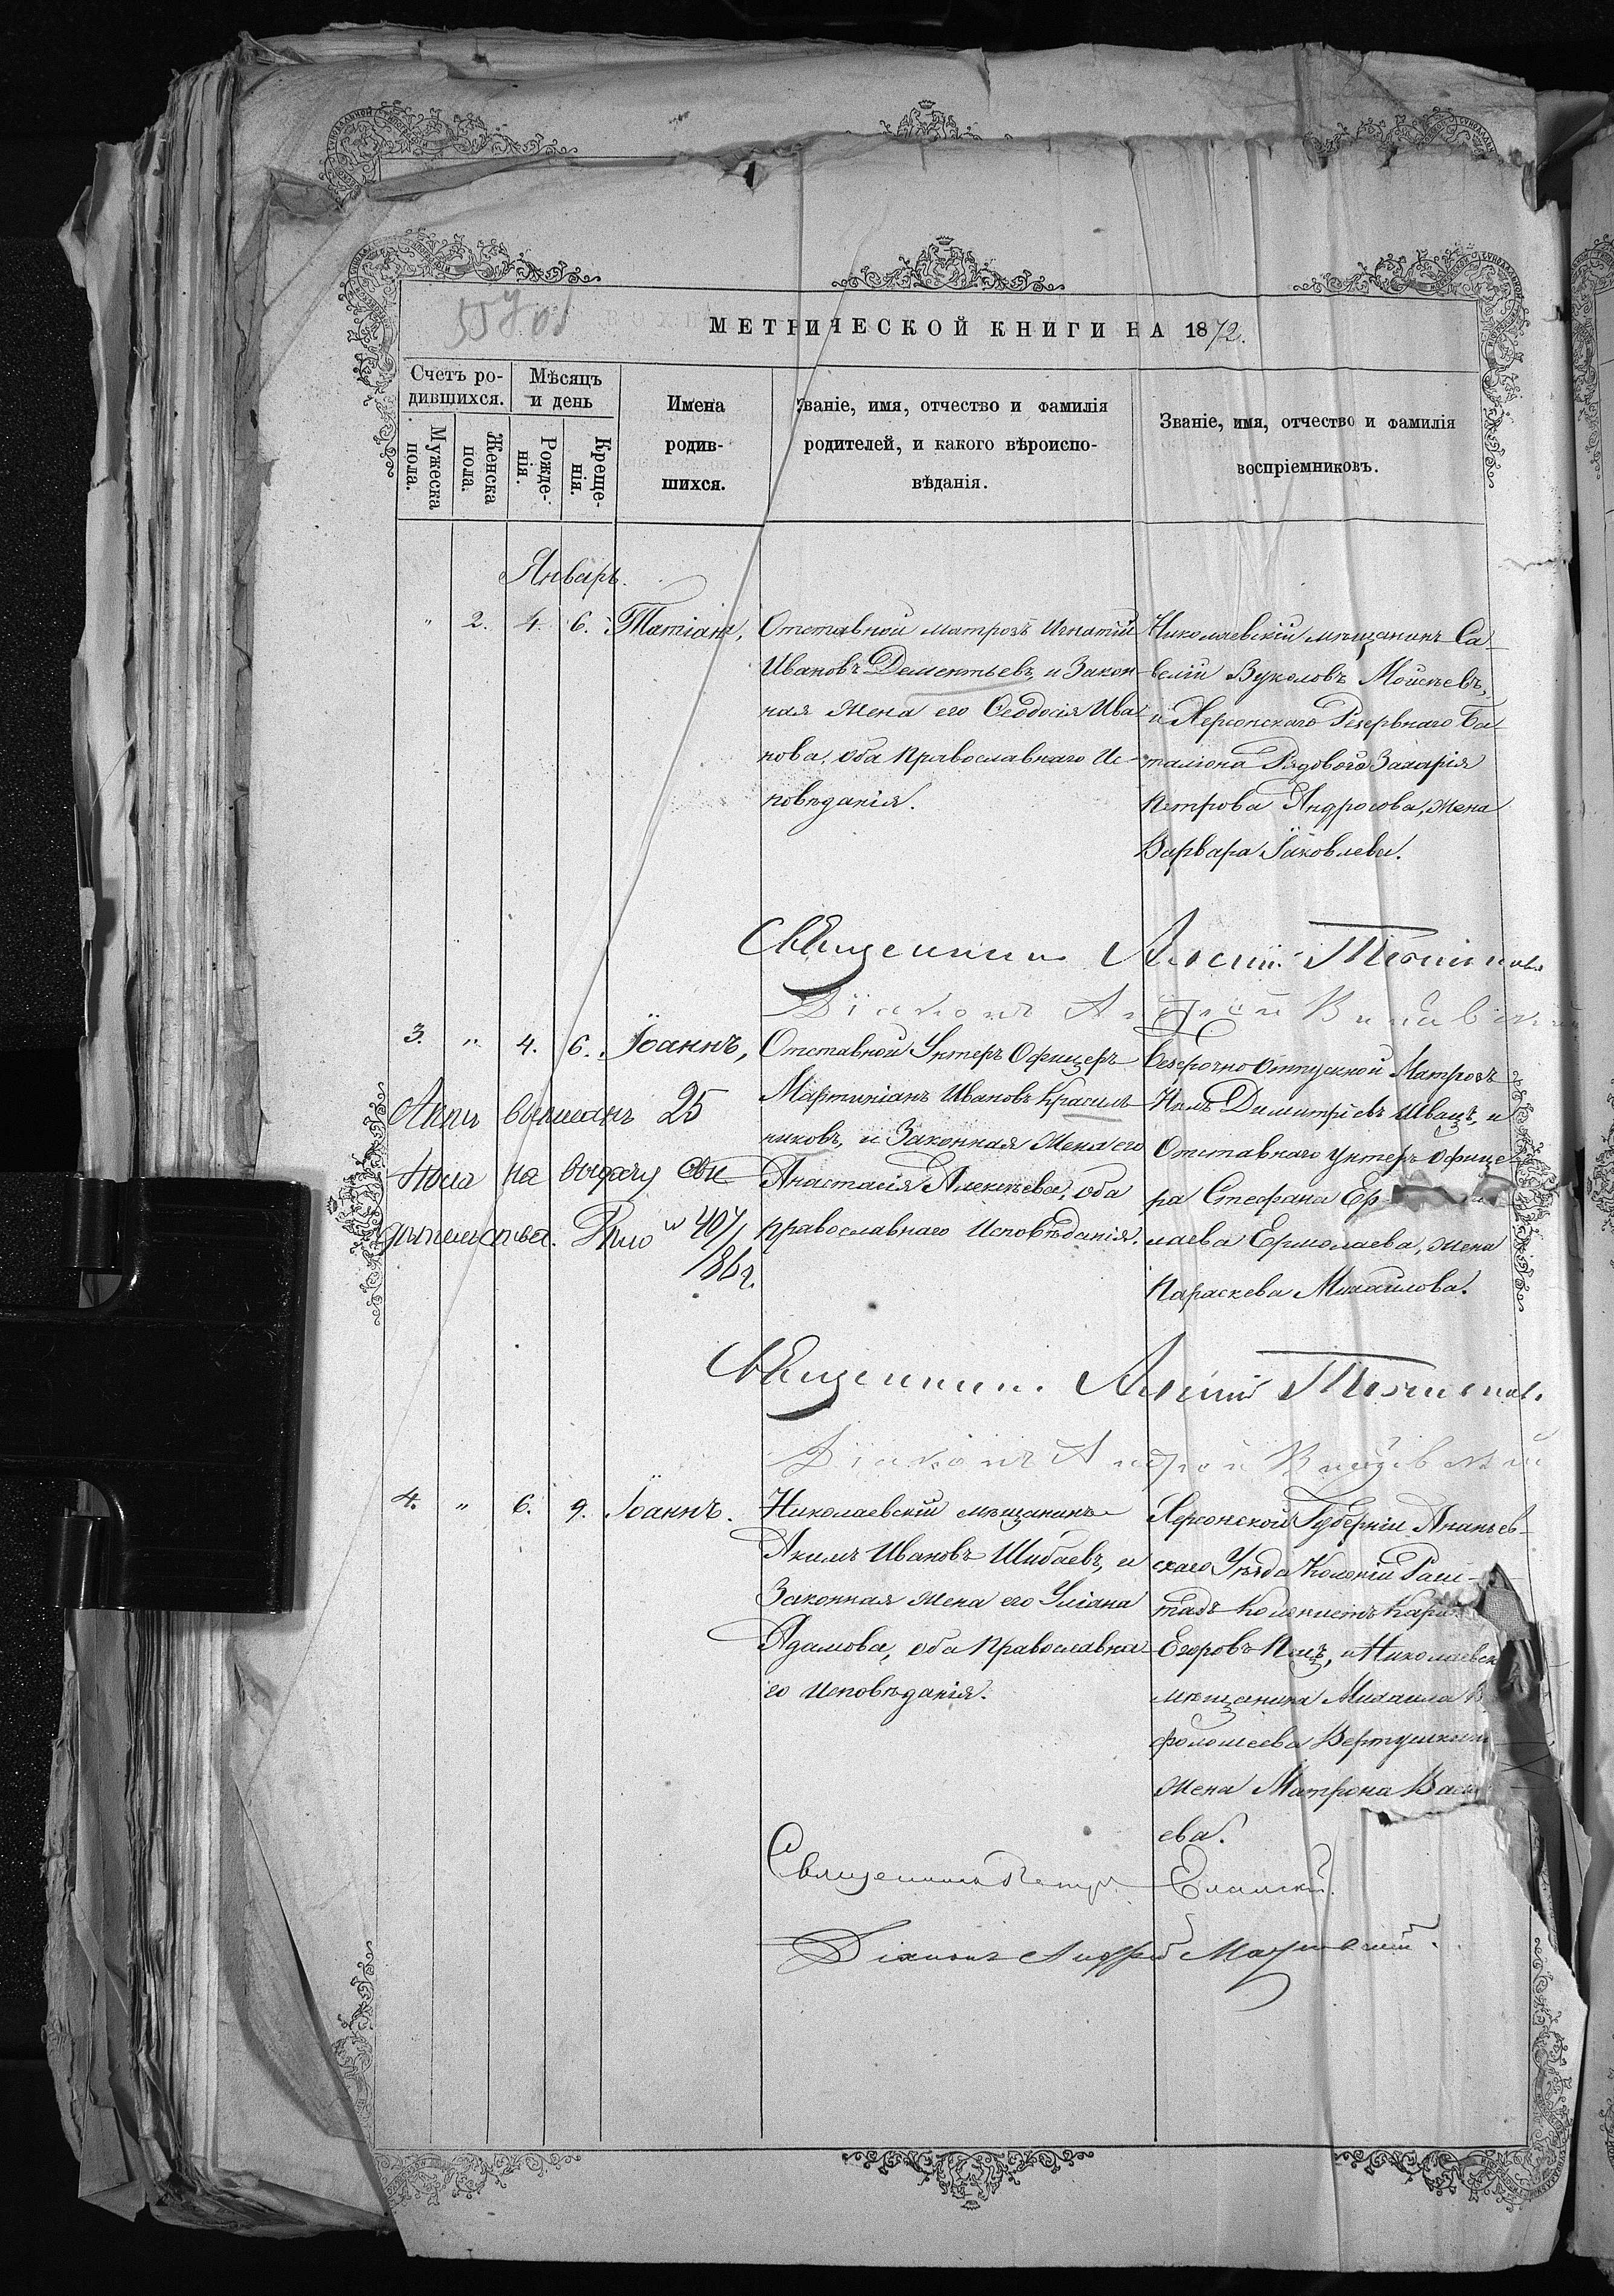 МЕТРИЧЕСКОЙ КНИГИ НА 1872.
Счетъ ро-
дившихся.
Мужеска
пола.
Женска
пола.
Мѣсяцъ
и день
Рожде-
нія.
Креще-
нія.
Имена
родив-
шихся.
Званіе, имя, отчество и фамилія
родителей, и какого вѣроиспо-
вѣданія.
Званіе, имя, отчество и фамилія
воспріемниковъ.
Январь.
" 2. 4. 6. Татіана,
Отставной матрозъ Игнатій
Ивановъ Дементьевъ, и Закон-
ная жена его Ѳеодосія Ива
нова, оба Православнаго Ис-
повѣданія.
Николаевскій мѣщанинъ Са-
велій Вуколовъ Мойсѣевъ,
и Херсонскаго Резервнаго Ба-
таліона Рядоваго Захарія
Петрова Андросова, жена
Варвара Іаковлева.
Священникъ Алексій
Діаконъ Андрей
3. " 4. 6. Іоаннъ,
Отставной Унтеръ Офицеръ
Мартиніанъ Ивановъ Красиль-
никовъ, и Законная жена его
Анастасія Алексѣева, оба
православнаго Исповѣданія.
Безсрочно отпускной Матрозъ
Нилъ Димитріевъ Швецъ, и
Отставнаго унтеръ офице-
ра Стефана Ер
лаева Ермолаева, жена
Параскева Михаилова.
Актъ выписанъ 25
Юла на выдачу сви-
дѣтельства. № 407/
86 г.
Священникъ Алексій
Діаконъ Андрей
4. " 6. 9. Іоаннъ.
Николаевскій мѣщанинъ
Акимъ Ивановъ Шибаевъ, и
Законная жена его Уліана
Адамова, оба Православна-
го исповѣданія.
Херсонской Губерніи Ананьев-
скаго Уѣзда Колоніи Раш-
тадъ колонистъ Карлъ
Егоровъ и Николаевск
мѣщанина Михаила В
фоломеева Вертушкина
жена Матрона Васи
ева.
Священникъ Петръ Еланскій.
Діаконъ Андрей